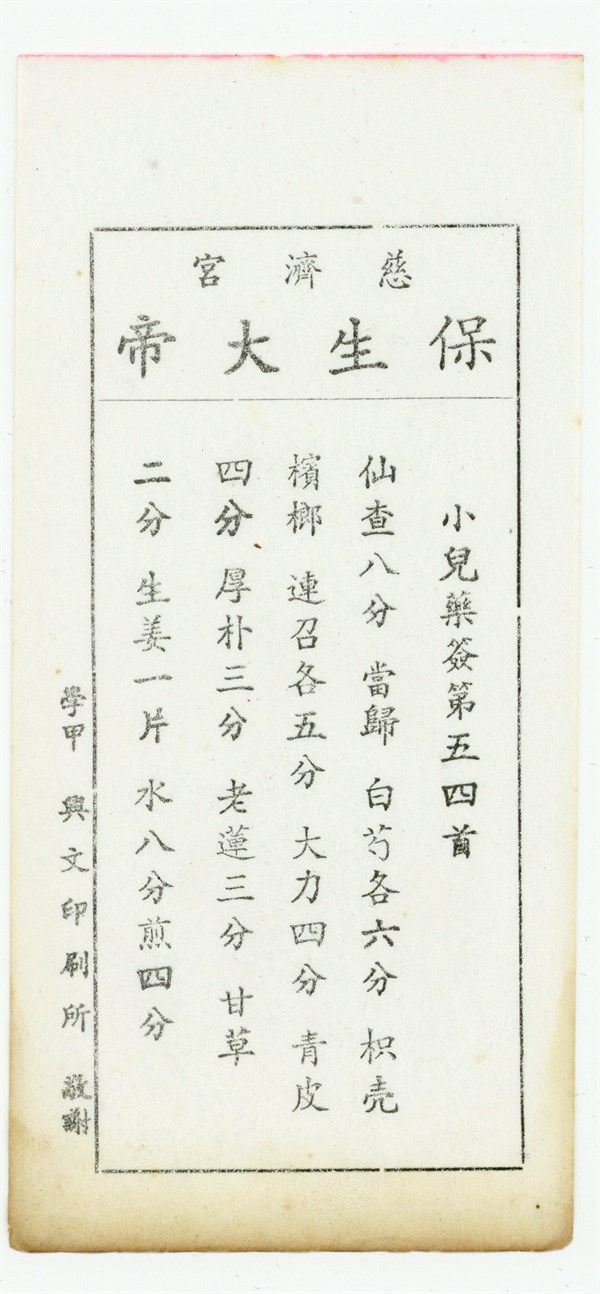 慈濟宮
保生大帝
小兒藥簽第五四首
仙查八分 當歸 白芍各六分 枳壳
檳榔 連召各五分 大力四分 青皮
四分 厚朴三分 老蓮三分 甘草
二分 生姜一片 水八分煎四分
學甲 興文印刷所 敬謝